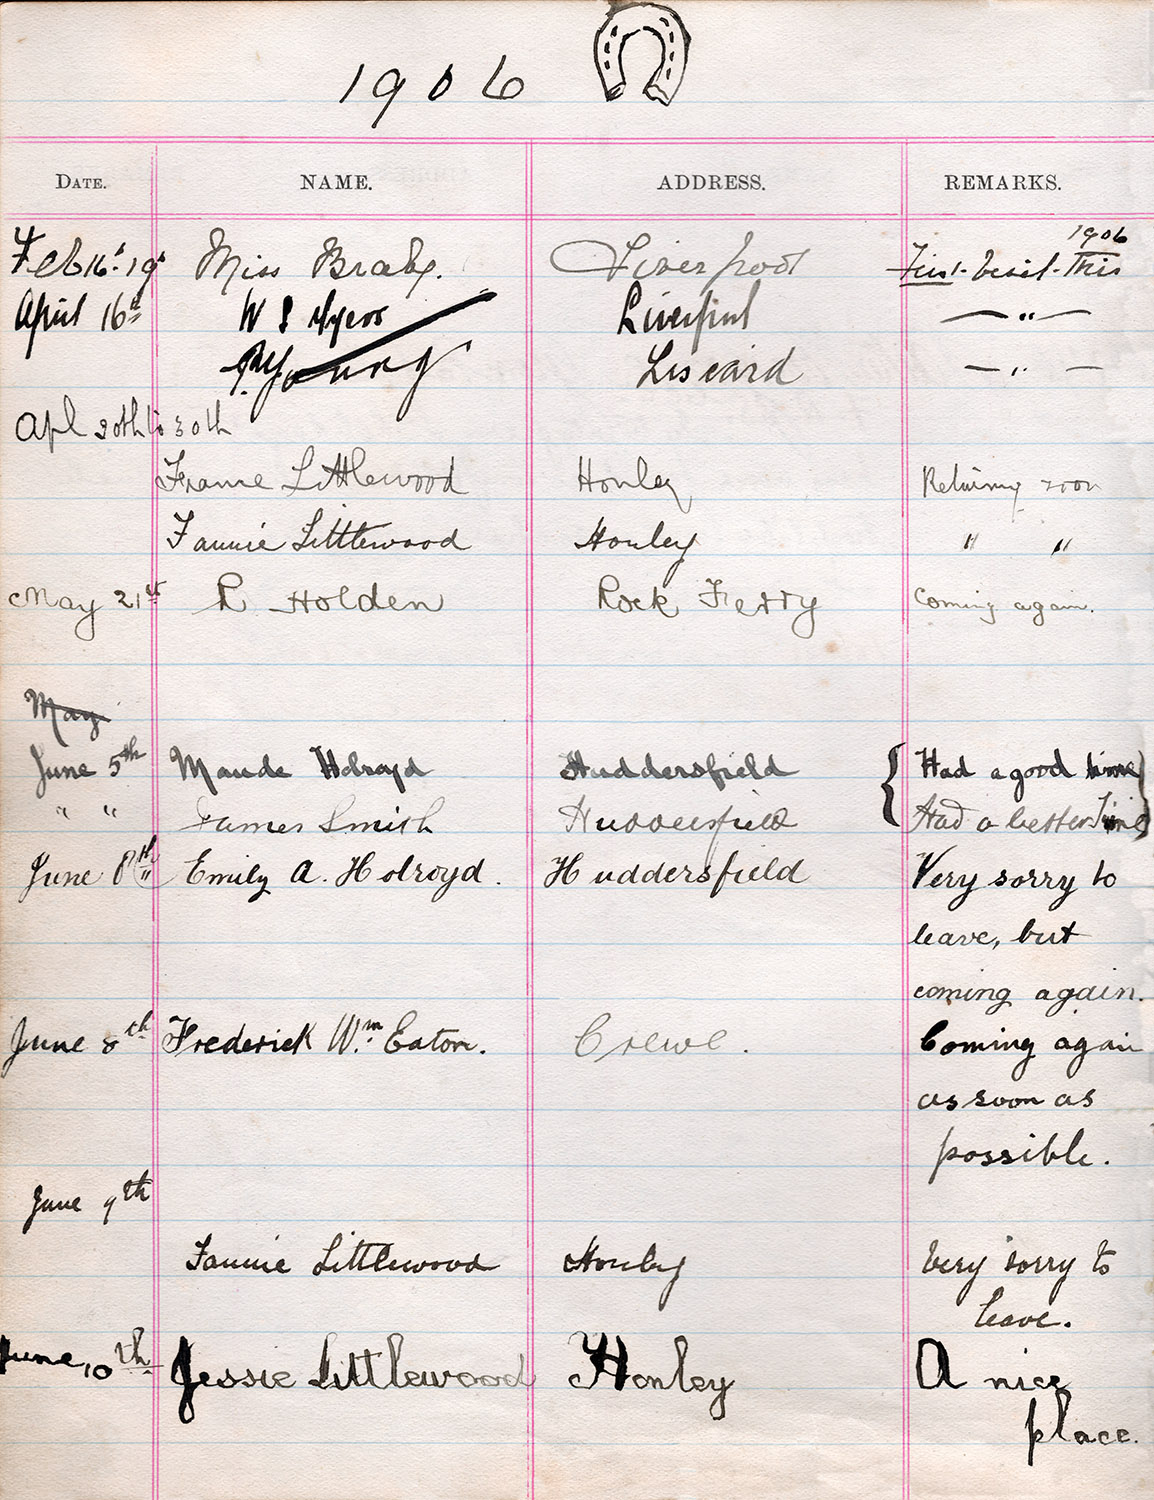 1906
DATE. NAME. ADDRESS. REMARKS.
1906
Feb 16th-19th Miss Braby. Liverpool First visit This
April 16th W S Myers Liverpool — " —
Young Liscard — " —
Apl 20th to 30th
Littlewood Honley Returning soon
Fannie Littlewood Honley " "
May 21st R Holden Rock Ferry Coming again.
May
June 5th Maude Holroyd Huddersfield { Had a good time }
" " James Smith Huddersfield Had a better Time
June 8th Emily A. Holroyd. Huddersfield Very sorry to
leave, but
coming again.
June 8th Frederick Wm. Eaton. Crewe. Coming again
as soon as
possible.
June 9th
Fannie Littlewood Honley Very sorry to
leave.
June, 10th Jessie Littlewood Honley A nice
place.